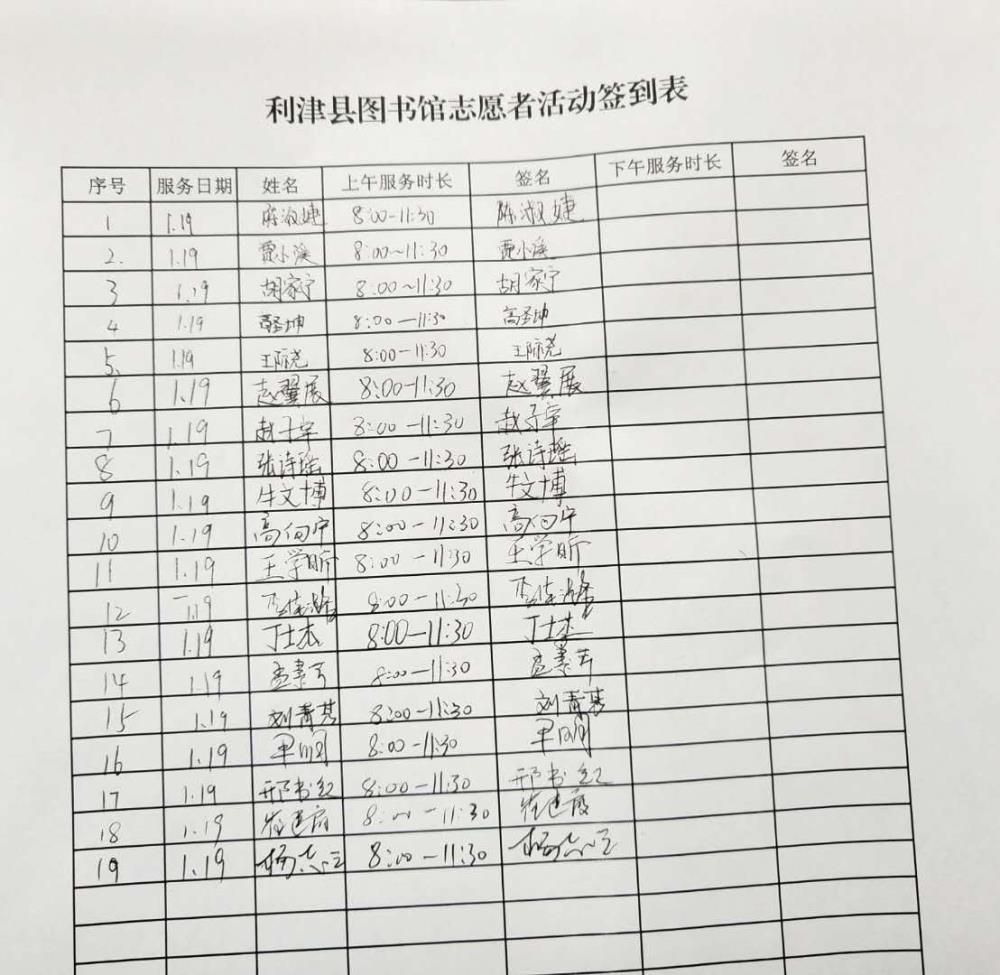 利津县图书馆志愿者活动签到表
序号 服务日期 姓名 上午服务时长 签名 下午服务时长 签名
1 1.19 陈淑婕 8:00-11:30 陈淑婕
2. 1.19 贾小溪 8:00~11:30 贾小溪
3 1.19 胡家宁 8:00~11:30 胡家宁
4 1.19 高圣坤 8:00—11:30 高圣坤
5. 1.19 王际尧 8:00-11:30 王际尧
6 1.19 赵翼展 8:00-11:30 赵翼展
7 1.19 赵子宇 8:00-11:30 赵子宇
8 1.19 张诗瑶 8:00-11:30 张诗瑶
9 1.19 牛文博 8:00-11:30 牛文博
10 1.19 高向宁 8:00-11:30 高向宁
11 1.19 王学昕 8:00-11:30 王学昕
12 1.19 8:00-11:30
13 1.19 丁士杰 8:00-11:30 丁士杰
14 1.19 8:00-11:30
15 1.19 刘青基 8:00-11:30 刘青基
16 1.19 8:00-11:30
17 1.19 邢书红 8:00-11:30 邢书红
18 1.19 8:00-11:30
19 1.19 杨志 8:00-11:30 杨志